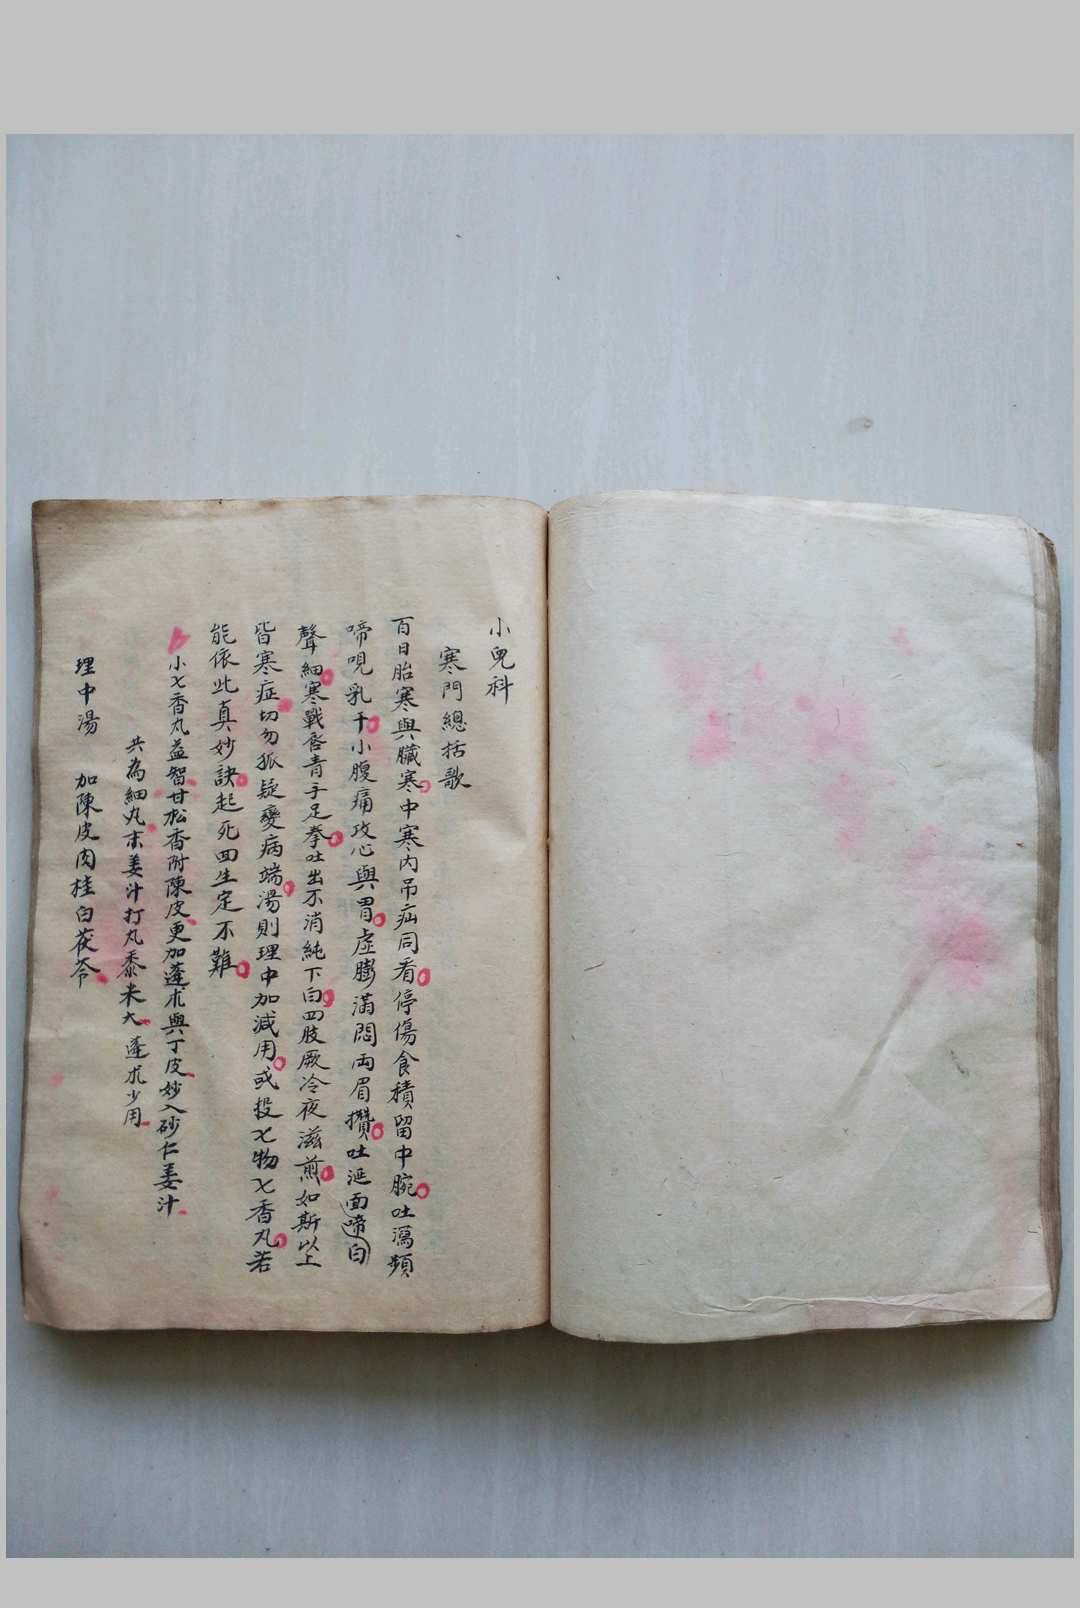 小兒科
寒門總括歌
百日胎寒與臟寒中寒內吊疝同看停傷食積留中腕吐瀉頻
啼哯乳干小腹痛攻心與胃虛膨滿悶両眉攢吐涎面啼白
聲細寒戰唇青手足拳吐出不消純下白四肢厥冷夜滋煎如斯以上
皆寒症切勿狐疑變病端湯則理中加減用或投七物七香丸若
能依此真妙訣起死囬生定不難
小七香丸益智甘松香附陳皮更加蓬朮與丁皮妙入砂仁姜汁
共為細丸末姜汁打丸黍米大蓬朮少用
理中湯 加陳皮肉桂白茯苓